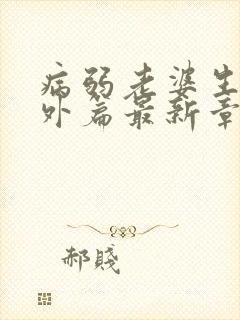 病弱老婆生
外篇最新章
郝賤